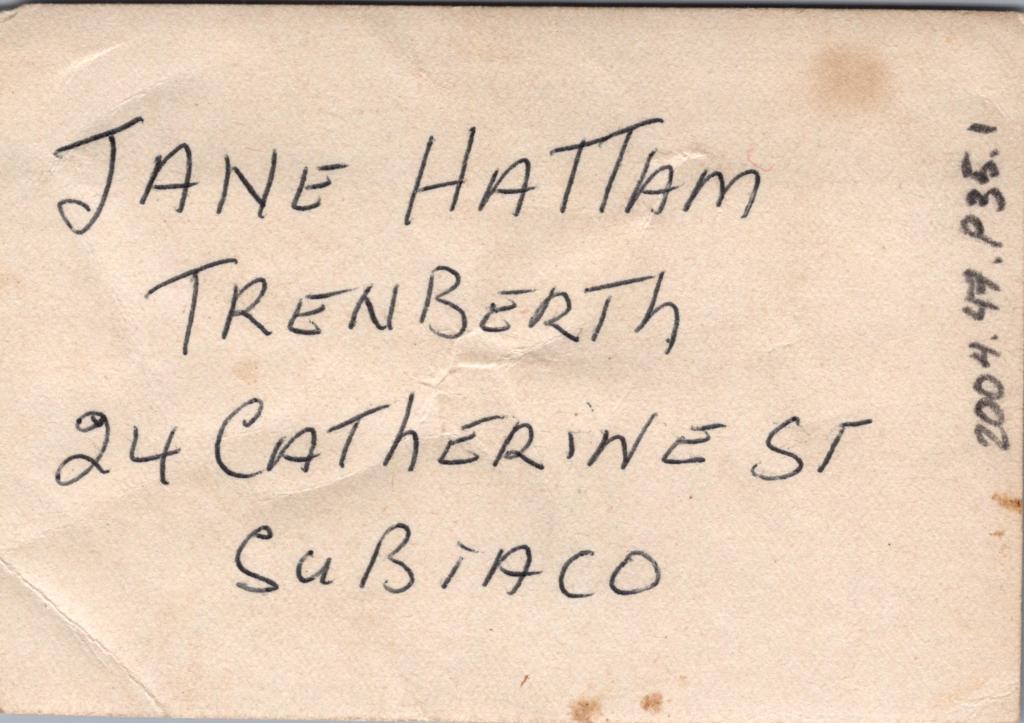 JANE HATTAM
TRENBERTH
24 CATHERINE ST
SUBIACO
2004.47.P35.1